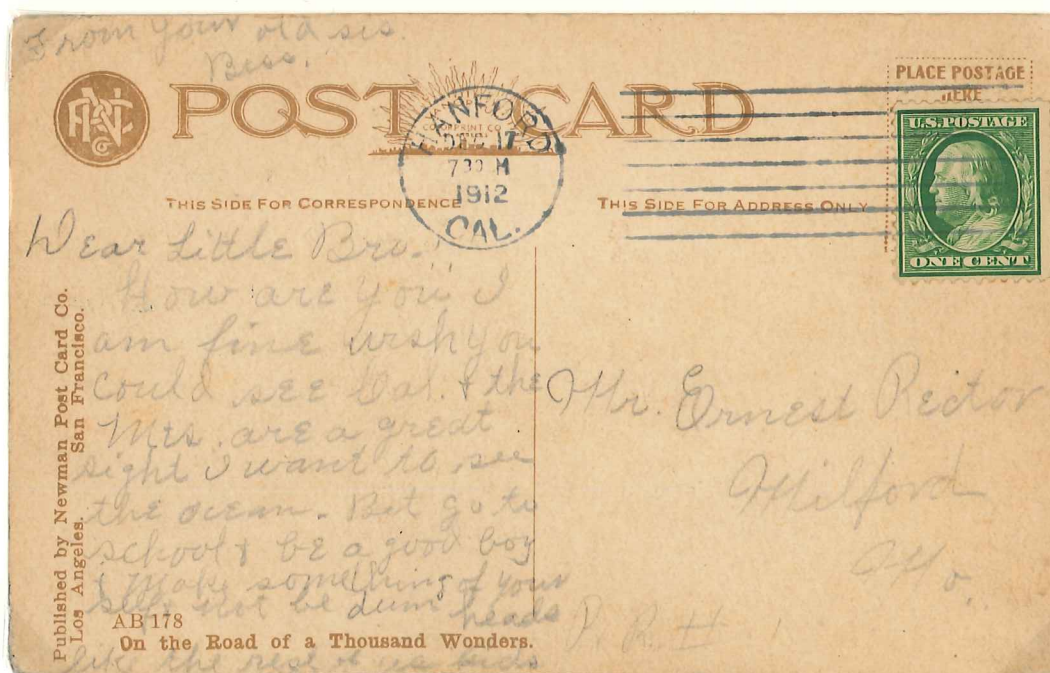 From your old sis.
Bess.
POST CARD
PLACE POSTAGE
HERE
HANFORD
DEC 17
730 M
1912
CAL.
U.S. POSTAGE
ONE CENT
THIS SIDE FOR CORRESPONDENCE
THIS SIDE FOR ADDRESS ONLY
Dear Little Bro.
How are you I
am fine wish you
could see Cal. & the
Mts. are a great
sight I want to see
the ocean. But go to
school & be a good boy
& Make something of your
self not be dum heads
like the rest of us kids
Mr. Ernest Rector
Milford
Mo.
Published by Newman Post Card Co.
Los Angeles. San Francisco.
AB 178
On the Road of a Thousand Wonders.